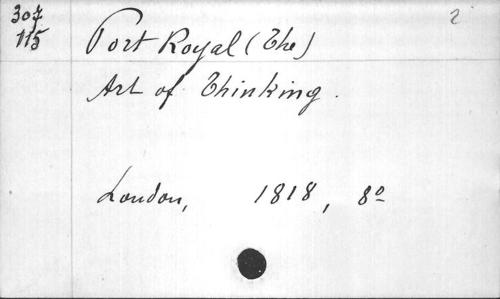 307
115
Port Royal (The)
Art of Thinking.
London, 1818, 8º
2